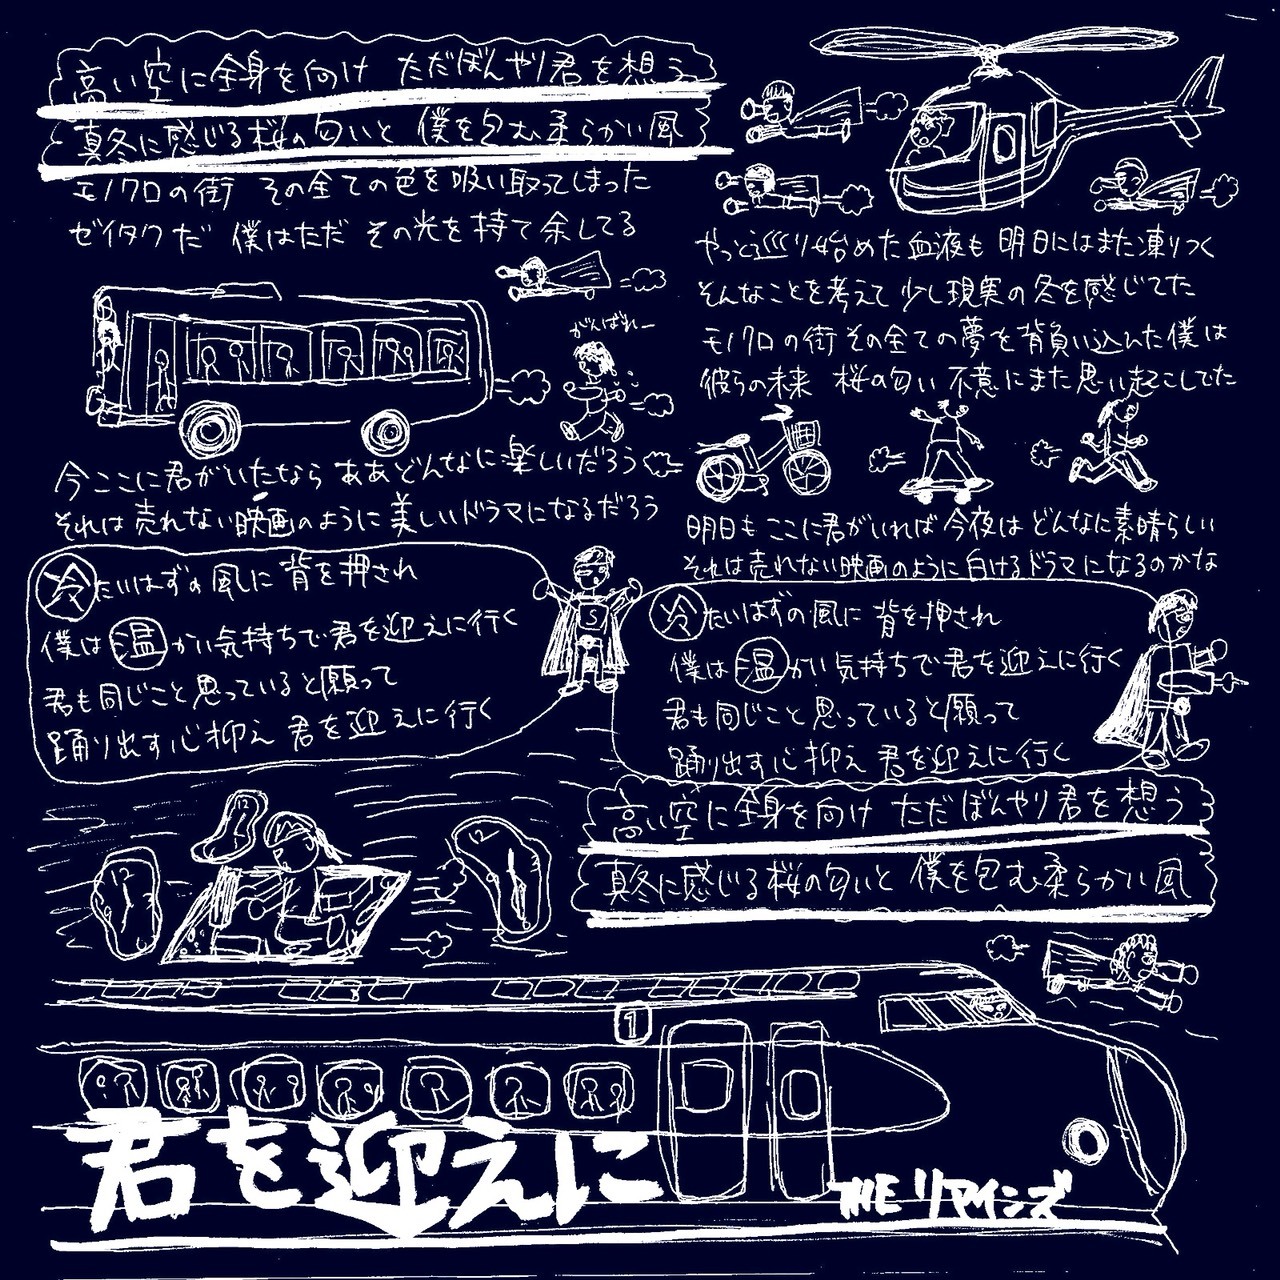 高い空に全身を向け ただぼんやり君を想う
真冬に感じる桜の匂いと 僕を包む柔らかい風
モノクロの街 その全ての色を吸い取ってしまった
ゼイタクだ 僕はただ その光を持て余してる
がんばれー
今ここに君がいたなら ああどんなに楽しいだろう
それは売れない映画のように美しいドラマになるだろう
冷たいはずの風に 背を押され
僕は温かい気持ちで君を迎えに行く
君も同じこと思っていると願って
踊り出す心抑え 君を迎えに行く
やっと巡り始めた血液も 明日にはまた凍りつく
そんなことを考えて 少し現実の冬を感じてた
モノクロの街 その全ての夢を背負い込んだ僕は
彼らの未来 桜の匂い 不意にまた思い起こしてた
明日も ここに君がいれば 今夜は どんなに素晴らしい
それは売れない映画のように白けるドラマになるのかな
S
冷たいはずの風に 背を押され
僕は温かい気持ちで君を迎えに行く
君も同じこと思っていると願って
踊り出す心抑え 君を迎えに行く
高い空に全身を向け ただぼんやり君を想う
真冬に感じる桜の匂いと 僕を包む柔らかい風
12
12
12
1
君を迎えに
THE リマインズ